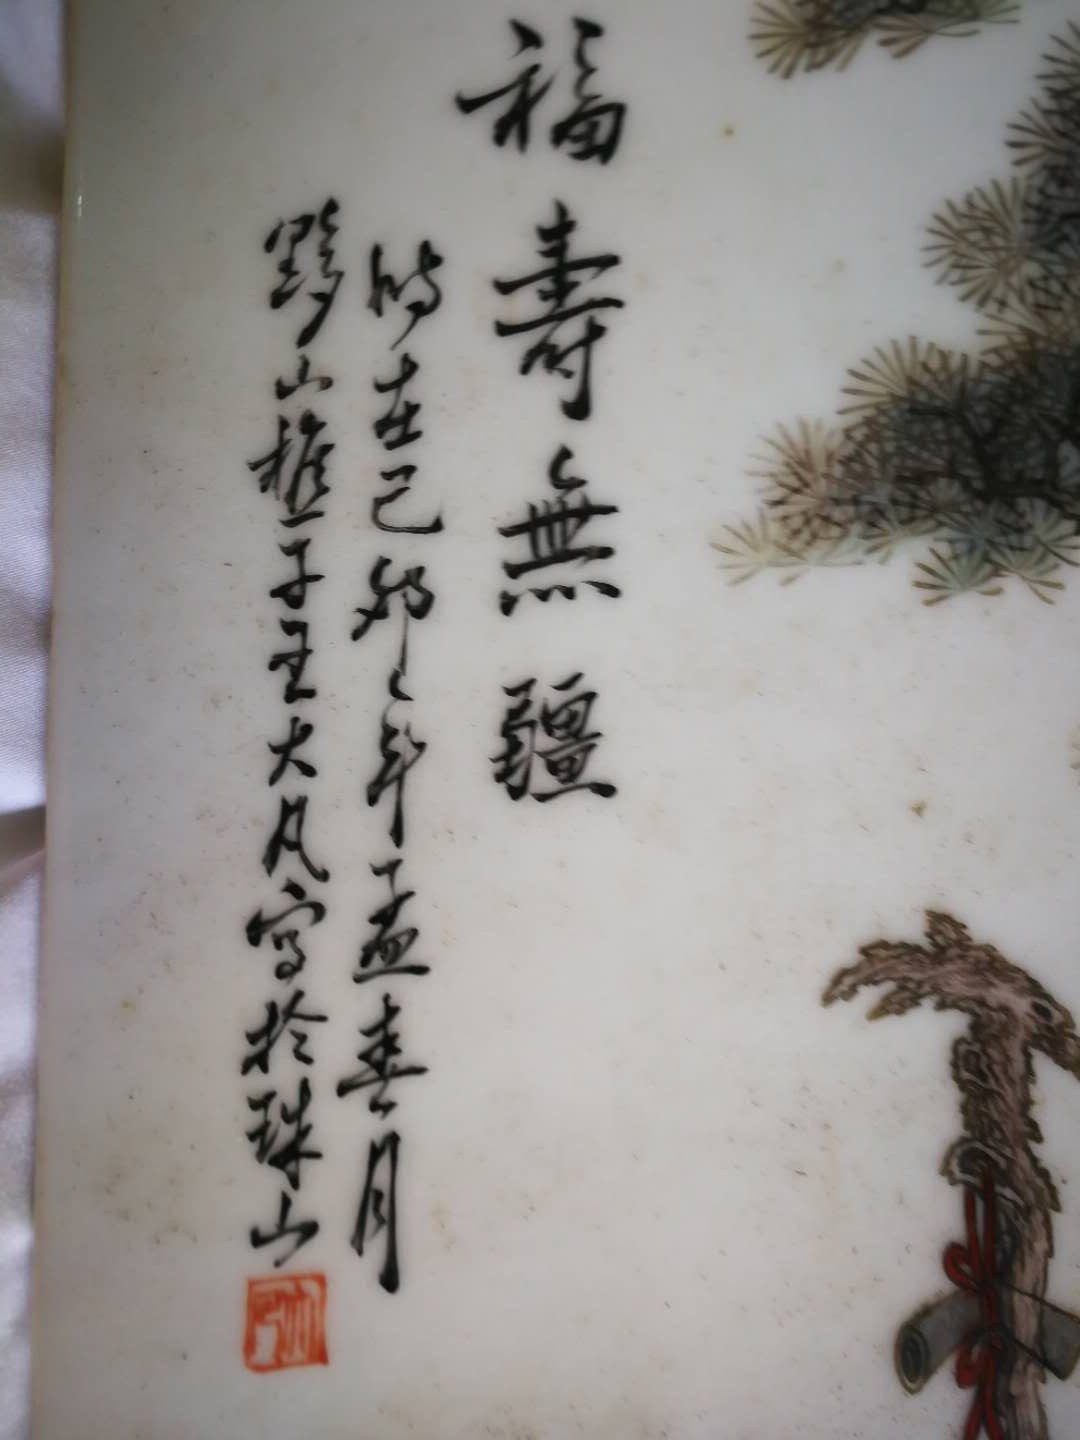 福壽無疆
時在己卯年孟春月
黟山樵子王大凡寫於珠山